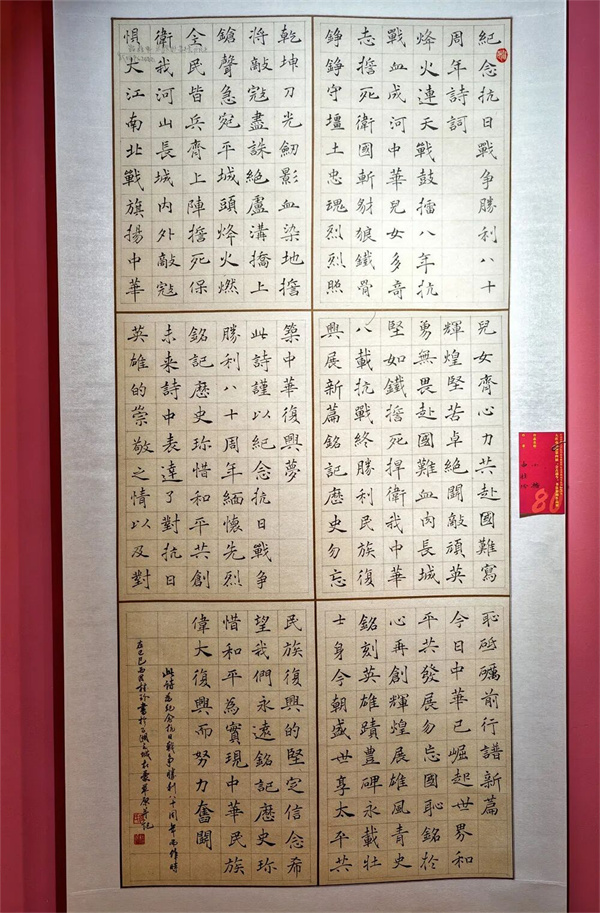 紀念抗日戰爭勝利八十
周年詩詞
烽火連天戰鼓擂八年抗
戰血成河中華兒女多奇
志擔死衛國斬豺狼鐵骨
錚錚守壇土忠魂烈烈照
乾坤刀光劒影血染地擔
將敵寇盡誅絕盧溝橋上
鎗聲急宛平城頭烽火燃
全民皆兵齊上陣擔死保
衛我河山長城內外敵寇
惧大江南北戰旗揚中華
兒女齊心力共赴國難寫
輝煌堅苦卓絕鬪敵頑英
勇無畏赴國難血肉長城
堅如鐵擔死捍衛我中華
八載抗戰終勝利民族復
興展新篇銘記歷史勿忘
恥砥礪前行譜新篇
今日中華已崛起世界和
平共發展勿忘國恥銘於
心再創輝煌展雄風青史
銘刻英雄蹟豊碑永載壯
士身今朝盛世享太平共
築中華復興夢
此詩謹以紀念抗日戰爭
勝利八十周年緬懷先烈
銘記歷史珍惜和平共創
未来詩中表達了對抗日
英雄的崇敬之情以及對
民族復興的堅定信念希
望我們永遠銘記歷史珍
惜和平為實現中華民族
偉大復興而努力奮鬪
此詩為紀念抗日戰爭勝利八十周年而作時
80